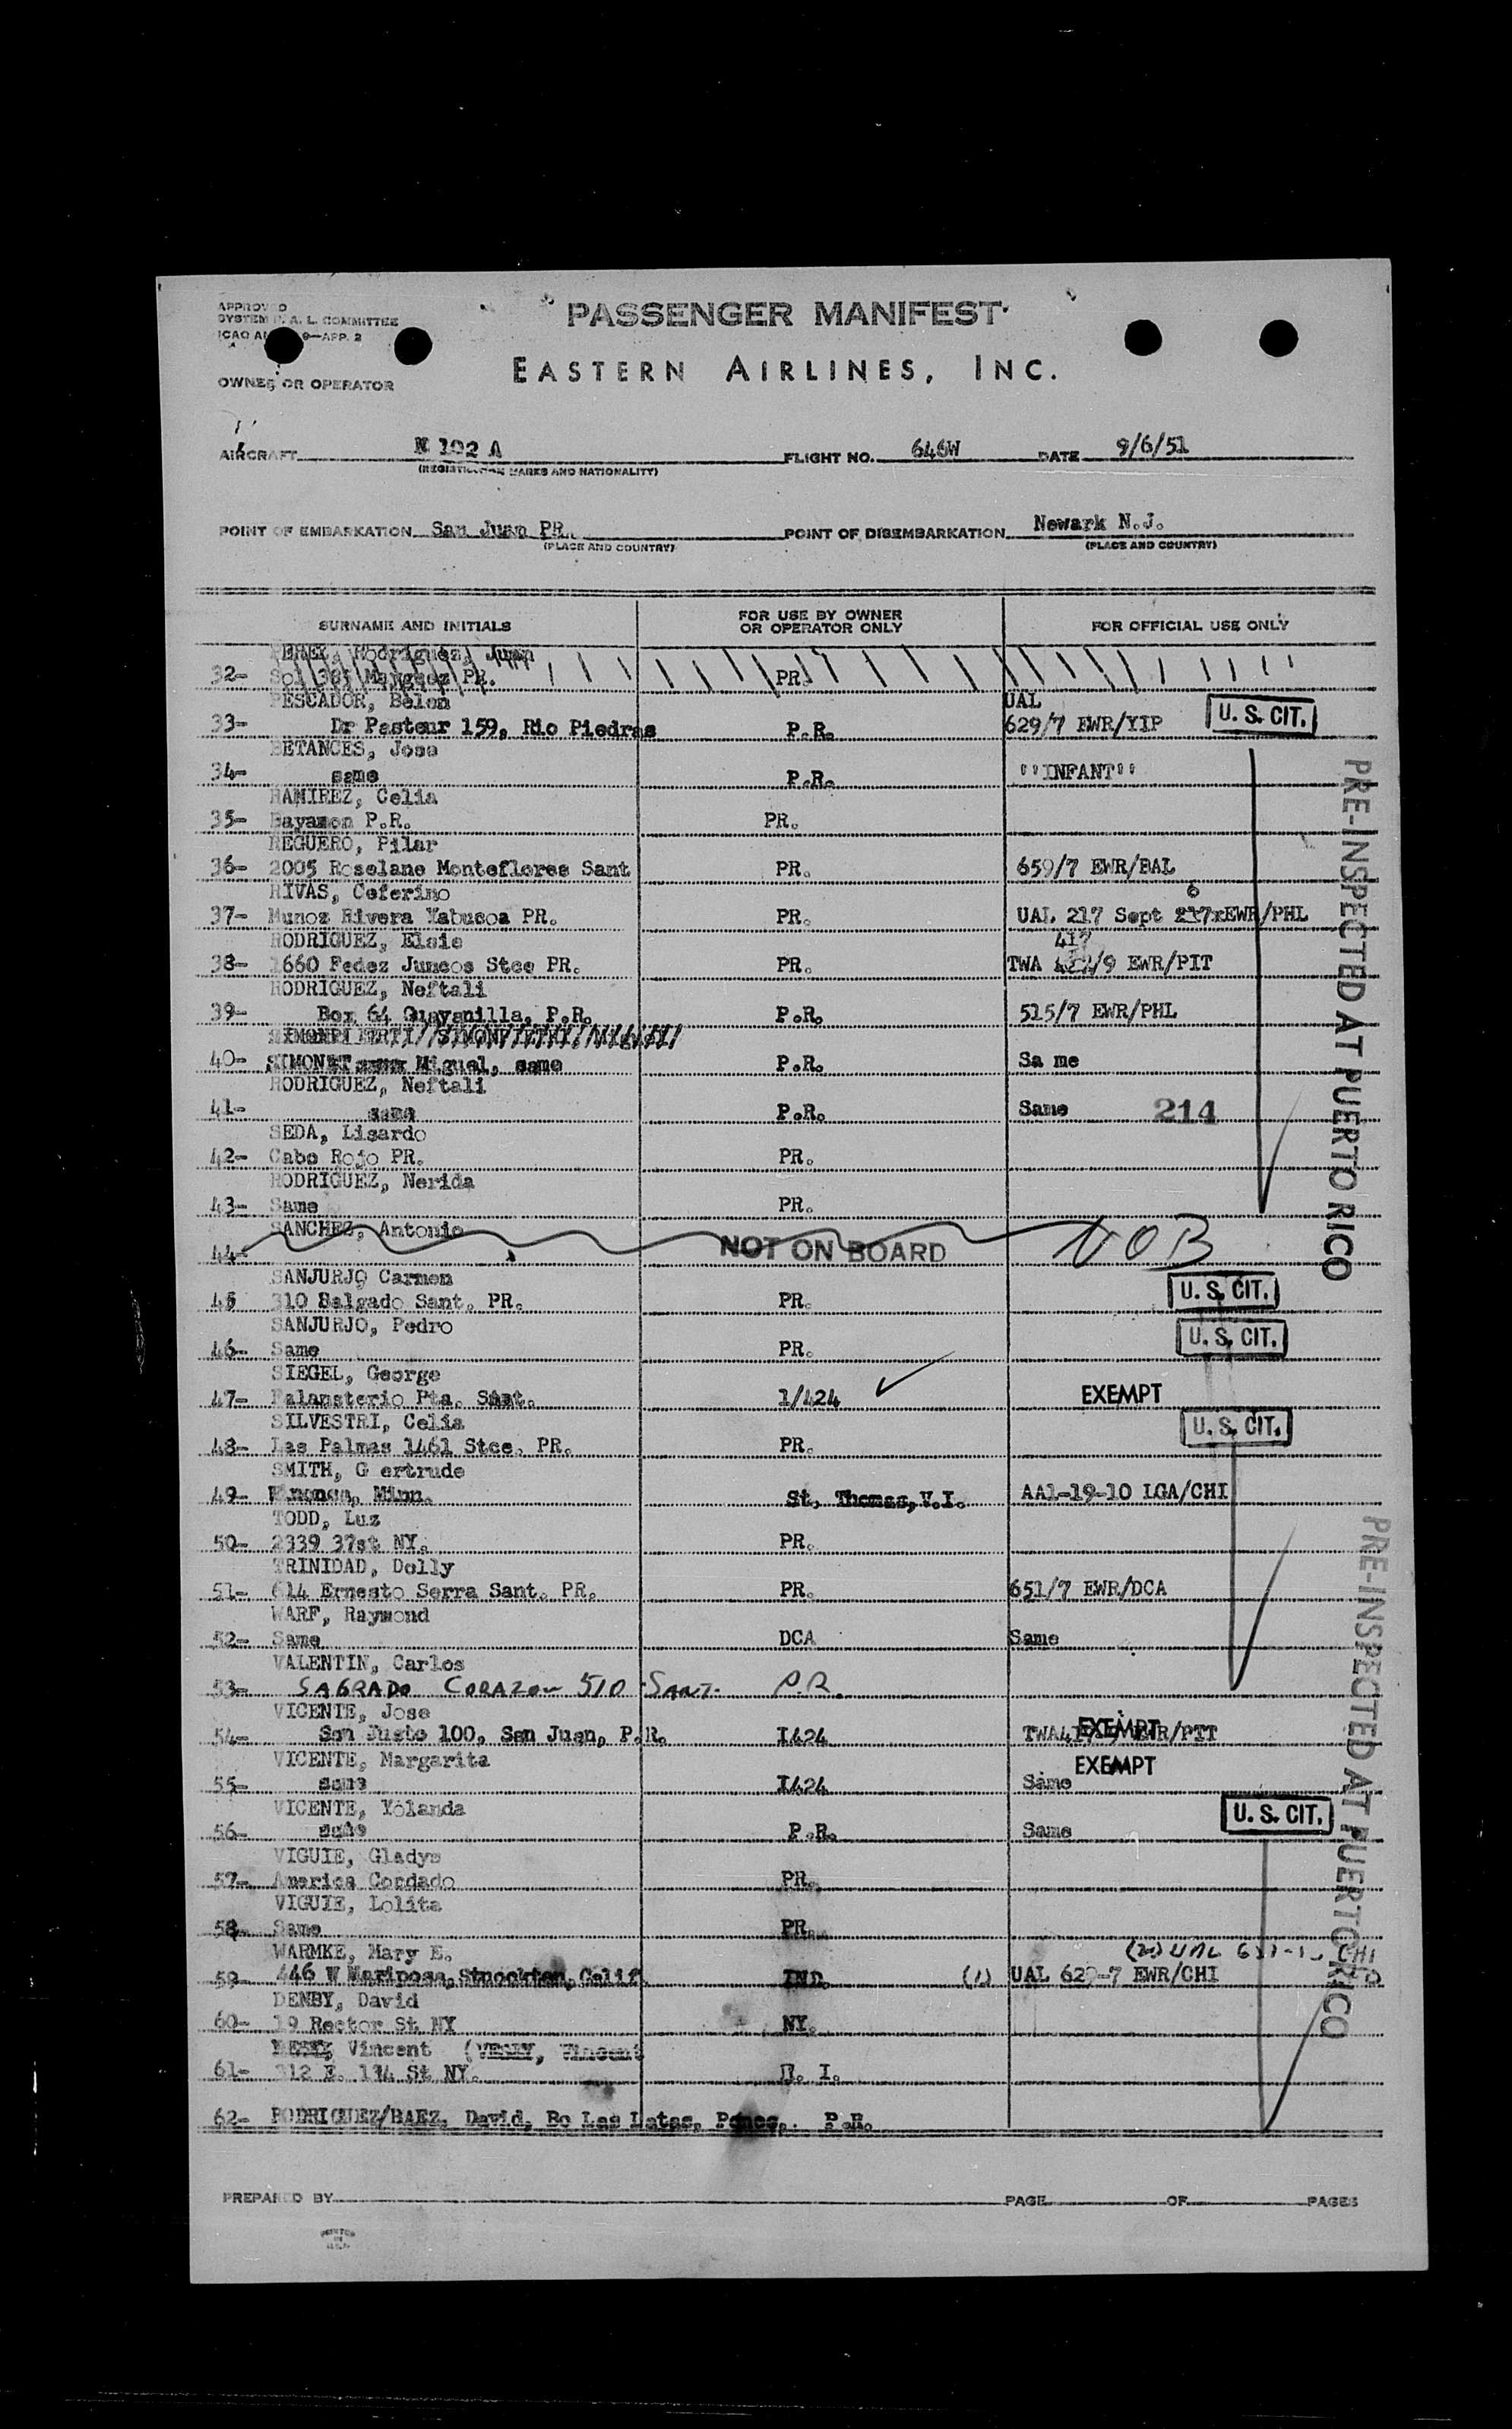 PASSENGER MANIFEST
EASTERN AIRLINES, INC.
APPROVED
SYSTEM A. L. COMMITTEE
ICAO 9—APP. 2
OWNER OR OPERATOR
AIRCRAFT N 102 A FLIGHT NO. 646W DATE 9/6/51
(REGISTRATION MARKS AND NATIONALITY)
POINT OF EMBARKATION San Juan PR. POINT OF DISEMBARKATION Newark N.J.
(PLACE AND COUNTRY) (PLACE AND COUNTRY)
SURNAME AND INITIALS FOR USE BY OWNER OR OPERATOR ONLY FOR OFFICIAL USE ONLY
PEREZ, Rodriguez, Juan
32- Sol 385 PR. PR.
PESCADOR, Belen UAL
33- Dr Pasteur 159, Rio Piedras P.R. 629/7 EWR/YIP U. S. CIT.
BETANCES, Jose
34- same P.R. ''INFANT''
RAMIREZ, Celia
35- Bayamon P.R. PR.
REGUERO, Pilar
36- 2005 Roselane Monteflores Sant PR. 659/7 EWR/BAL
RIVAS, Ceferino 6
37- Munoz Rivera Yabucoa PR. PR. UAL 217 Sept EWR/PHL
RODRIGUEZ, Elsie 417
38- 1660 Fedez Juncos Stce PR. PR. TWA /9 EWR/PIT
RODRIGUEZ, Neftali
39- Box 64 Guayanilla, P.R. P.R. 515/7 EWR/PHL
40- SIMONET Miguel, same P.R. Sa me
RODRIGUEZ, Neftali
41- same P.R. Same 214
SEDA, Lisardo
42- Cabo Rojo PR. PR.
RODRIGUEZ, Nerida
43- Same PR.
SANCHEZ, Antonio
44- NOT ON BOARD NOB
SANJURJO Carmen
45 310 Salgado Sant. PR. PR. U. S. CIT.
SANJURJO, Pedro
46- Same PR. U. S. CIT.
SIEGEL, George
47- Falansterio Pta. Sant. 1/424 EXEMPT
SILVESTRI, Celia
48- Las Palmas 1461 Stce. PR. PR. U. S. CIT.
SMITH, G ertrude
49- Winonea, Minn. St. Thomas, V.I. AA1-19-10 LGA/CHI
TODD, Luz
50- 2339 37st NY. PR.
TRINIDAD, Dolly
51- 614 Ernesto Serra Sant. PR. PR. 651/7 EWR/DCA
WARF, Raymond
52- Same DCA Same
VALENTIN, Carlos
53- SAGRADO CORAZON 510 SANT. P.R.
VICENTE, Jose
54- San Justo 100, San Juan, P.R. I424 EWR/PIT EXEMPT
VICENTE, Margarita
55- same I424 Same EXEMPT
VICENTE, Yolanda
56- same P.R. Same U. S. CIT.
VIGUIE, Gladys
57- America Condado PR.
VIGUIE, Lolita
58- Same PR.
WARMKE, Mary E. (2) UAL CHI
59- 446 W Mariposa, Stoockton, Calif IND. (1) UAL EWR/CHI
DENBY, David
60- 19 Rector St NY NY.
Vincent (VESEY, Vincent
61- 312 E. 114 St NY.
62- RODRIGUEZ/BAEZ, David, Bo Las Latas, Ponce,. P.R.
PRE-INSPECTED AT PUERTO RICO
PRE-INSPECTED AT PUERTO RICO
PREPARED BY PAGE OF PAGES
PRINTED
IN
U.S.A.